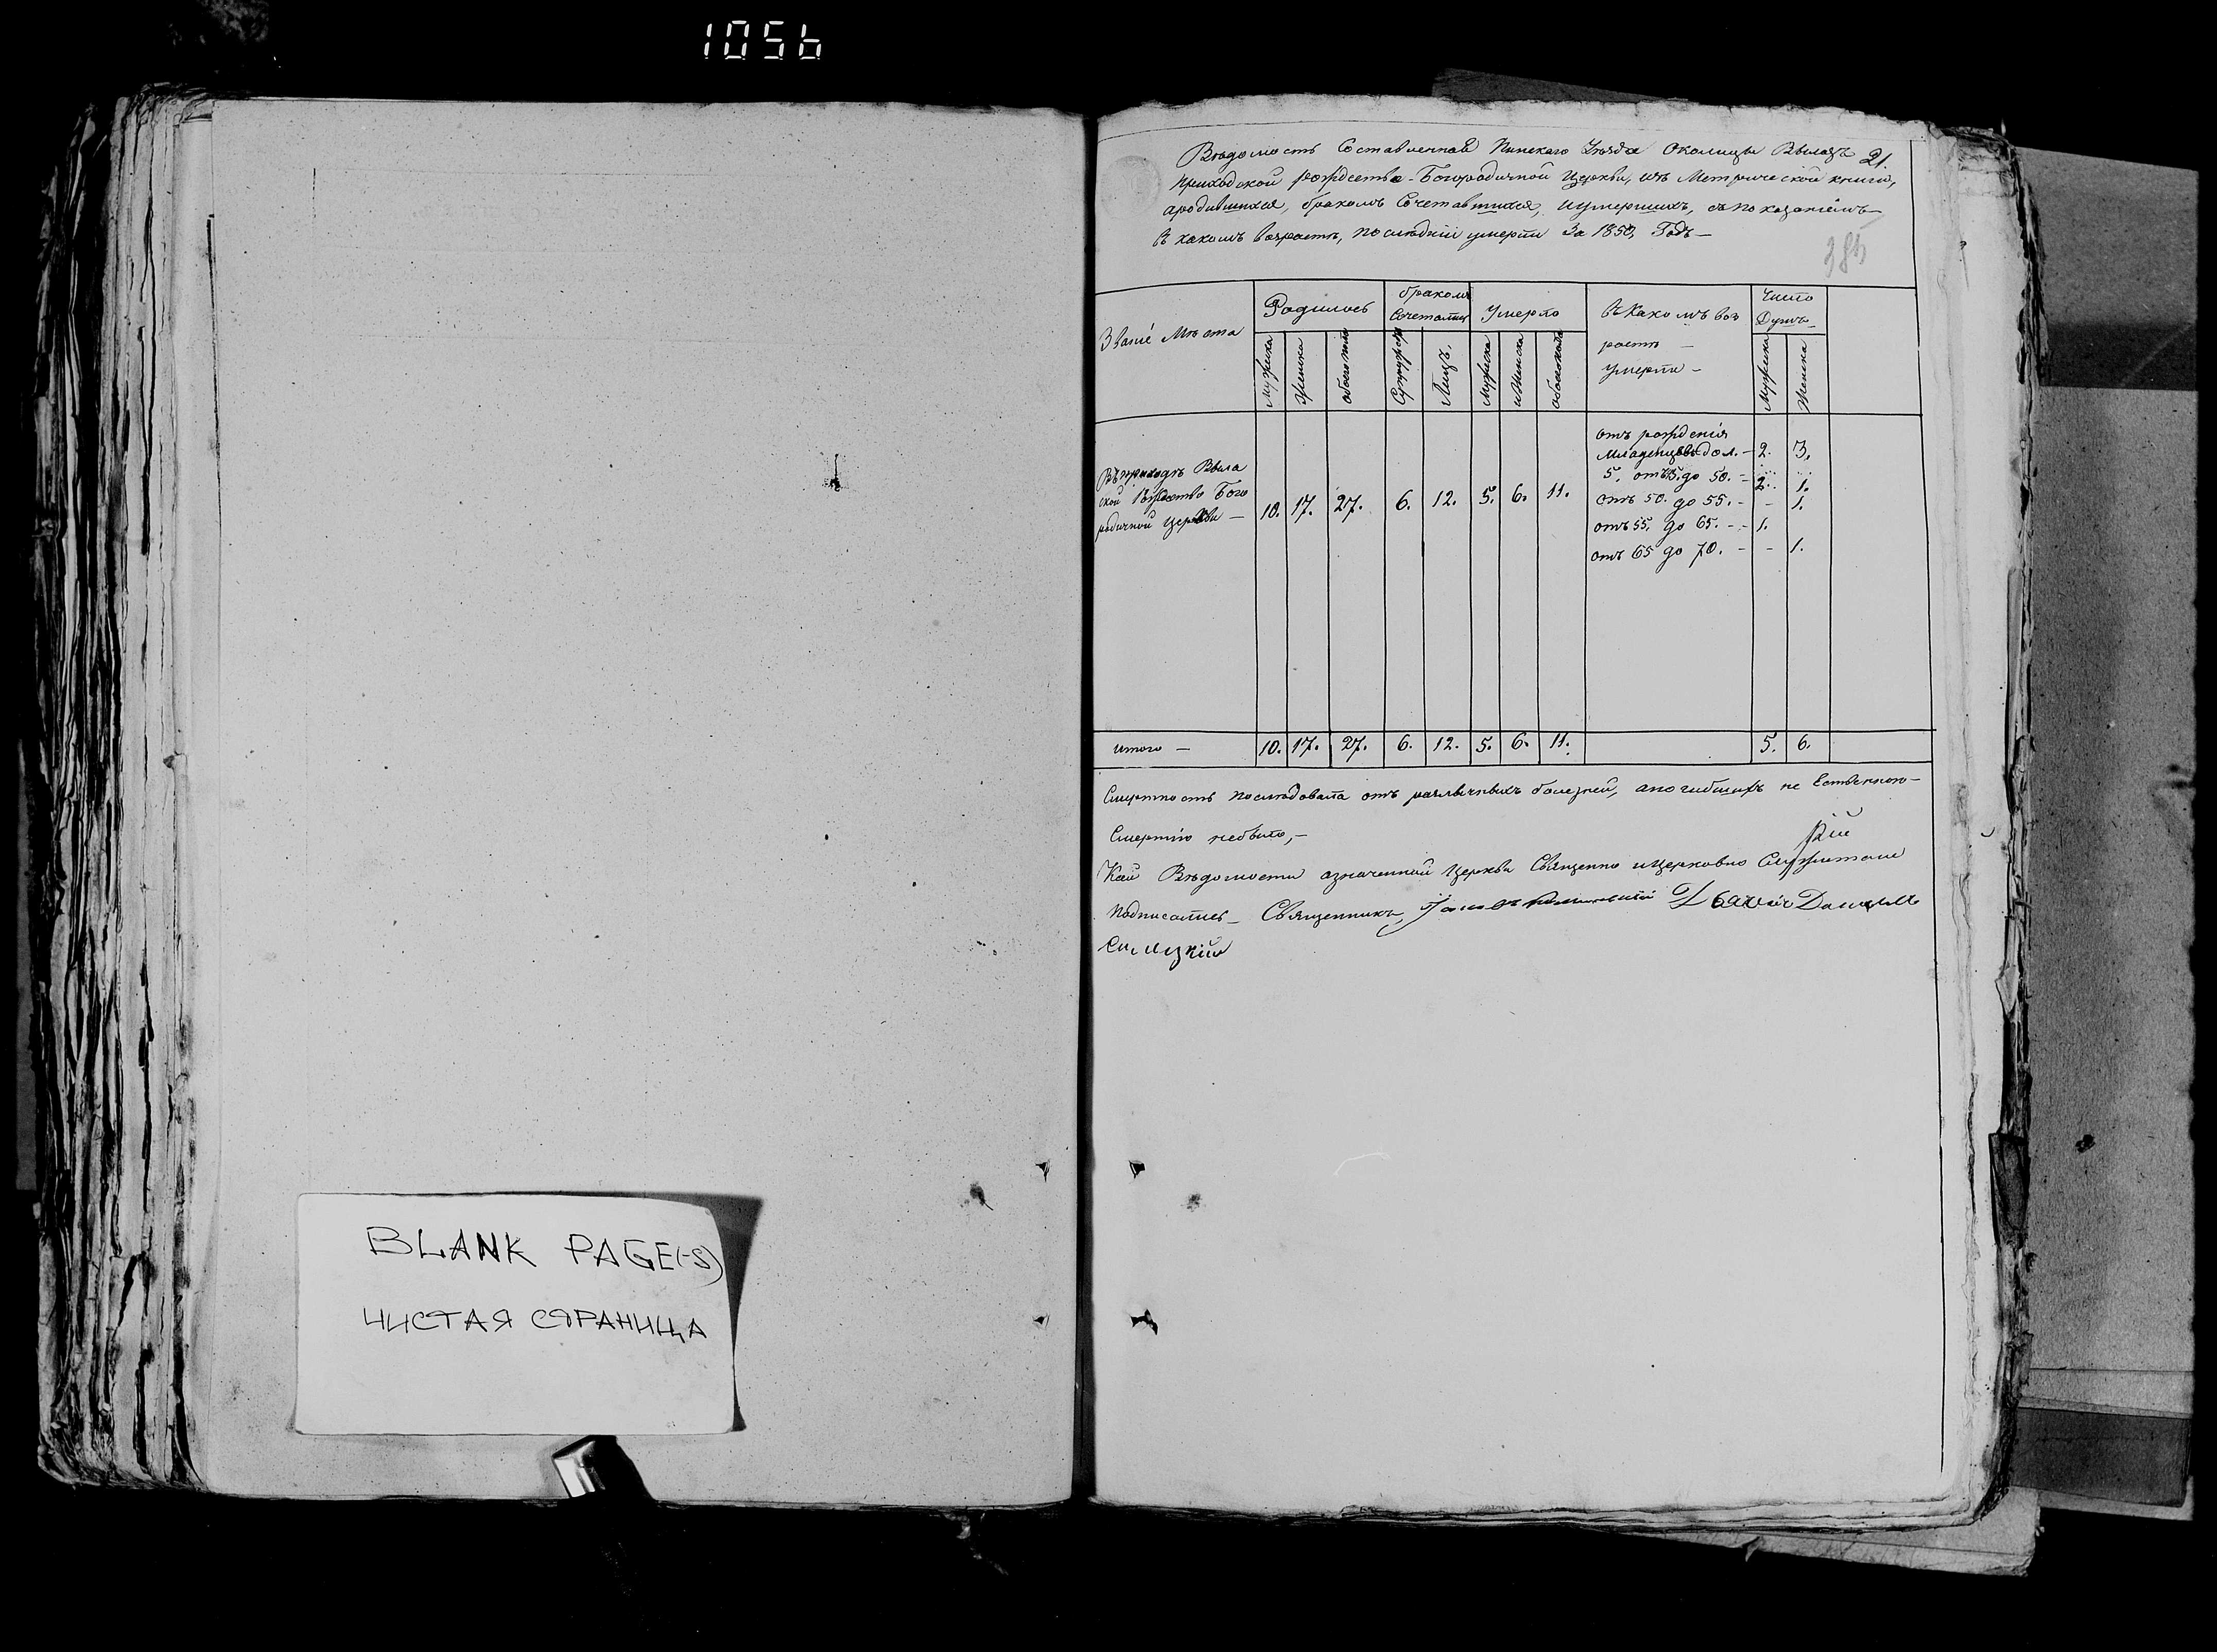 1056
BLANK PAGE(-S)
ЧИСТАЯ СТРАНИЦА
Вѣдомость Составленная Пинскаго Уѣзда Околицы Вылазъ 21.
Приходской рождества-Богородичной Церкви, изъ Метрической книги,
ародившихся, бракомъ Сочетавшихся, иумершихъ, съ показаніемъ
въ какомъ возрасти, последніи умерли За 1850, Годъ—
385
Званіе Мѣста
Родилось
бракомъ Сочеталися
Умерло
въ Какомъ воз
расти —
умерли —
Число
Душъ
Мужеска
Женска
обоегопола
Супружествъ
Лицъ.
Мужеска
иЖенска
обоегопола
Мужеска
Женска
Въ приходѣ Выла
ской Рождество Бого
родичной Церкви —
10. 17. 27. 6. 12. 5. 6. 11.
отъ рожденія
Младенцовъ до л. — 2. 3.
5. от 45. до 50. — 2. 1.
отъ 50. до 55. — - 1.
отъ 55. до 65. — 1.
отъ 65 до 70. — - 1.
итого — 10. 17. 27. 6. 12. 5. 6. 11. 5. 6.
Смертность последовала отъ различныхъ болезней, апогибшихъ не Ественною—
Смертію небыло,—
Кей Вѣдомости означенной Церкви Священно иЦерковно Служители
Подписались— Священникъ, Данилъ